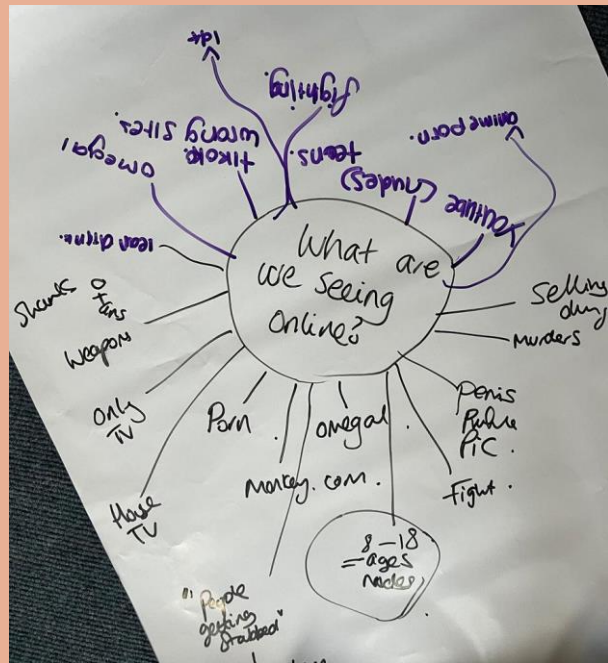 What are
we seeing
online?
idk
fighting.
teens.
tiktok.
wrong sites.
omegal
lean drink.
(nudes)
Youtube
anime porn.
Selling
drug
Murders
Penis
PIC.
Fight.
8-18
= ages
nudes
omegal.
Monkey.com.
Porn.
"People
getting
stabbed"
House
TV
Only
TV
Weapons